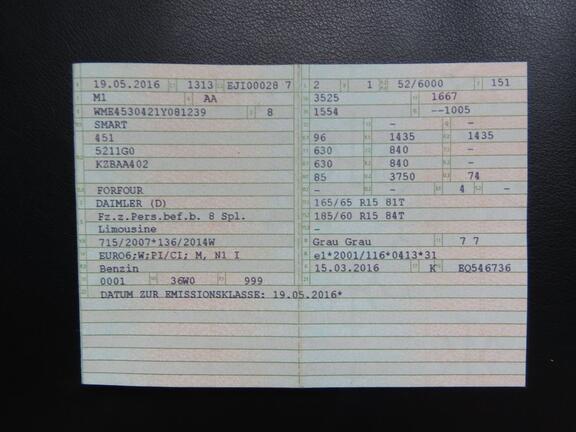 19.05.2016 1313 EJI00028 7
M1 AA
WME4530421Y081239 8
SMART
451
5211G0
KZBAA402
FORFOUR
DAIMLER (D)
Fz.z.Pers.bef.b. 8 Spl.
Limousine
715/2007*136/2014W
EURO6;W;PI/CI; M, N1 I
Benzin
0001 36W0 999
DATUM ZUR EMISSIONSKLASSE: 19.05.2016*
2 1 52/6000 151
3525 1667
1554 --1005
- -
96 1435 1435
630 840 -
630 840 -
85 3750 74
- - 4 -
165/65 R15 81T
185/60 R15 84T
-
Grau Grau 7 7
e1*2001/116*0413*31
15.03.2016 K EQ546736